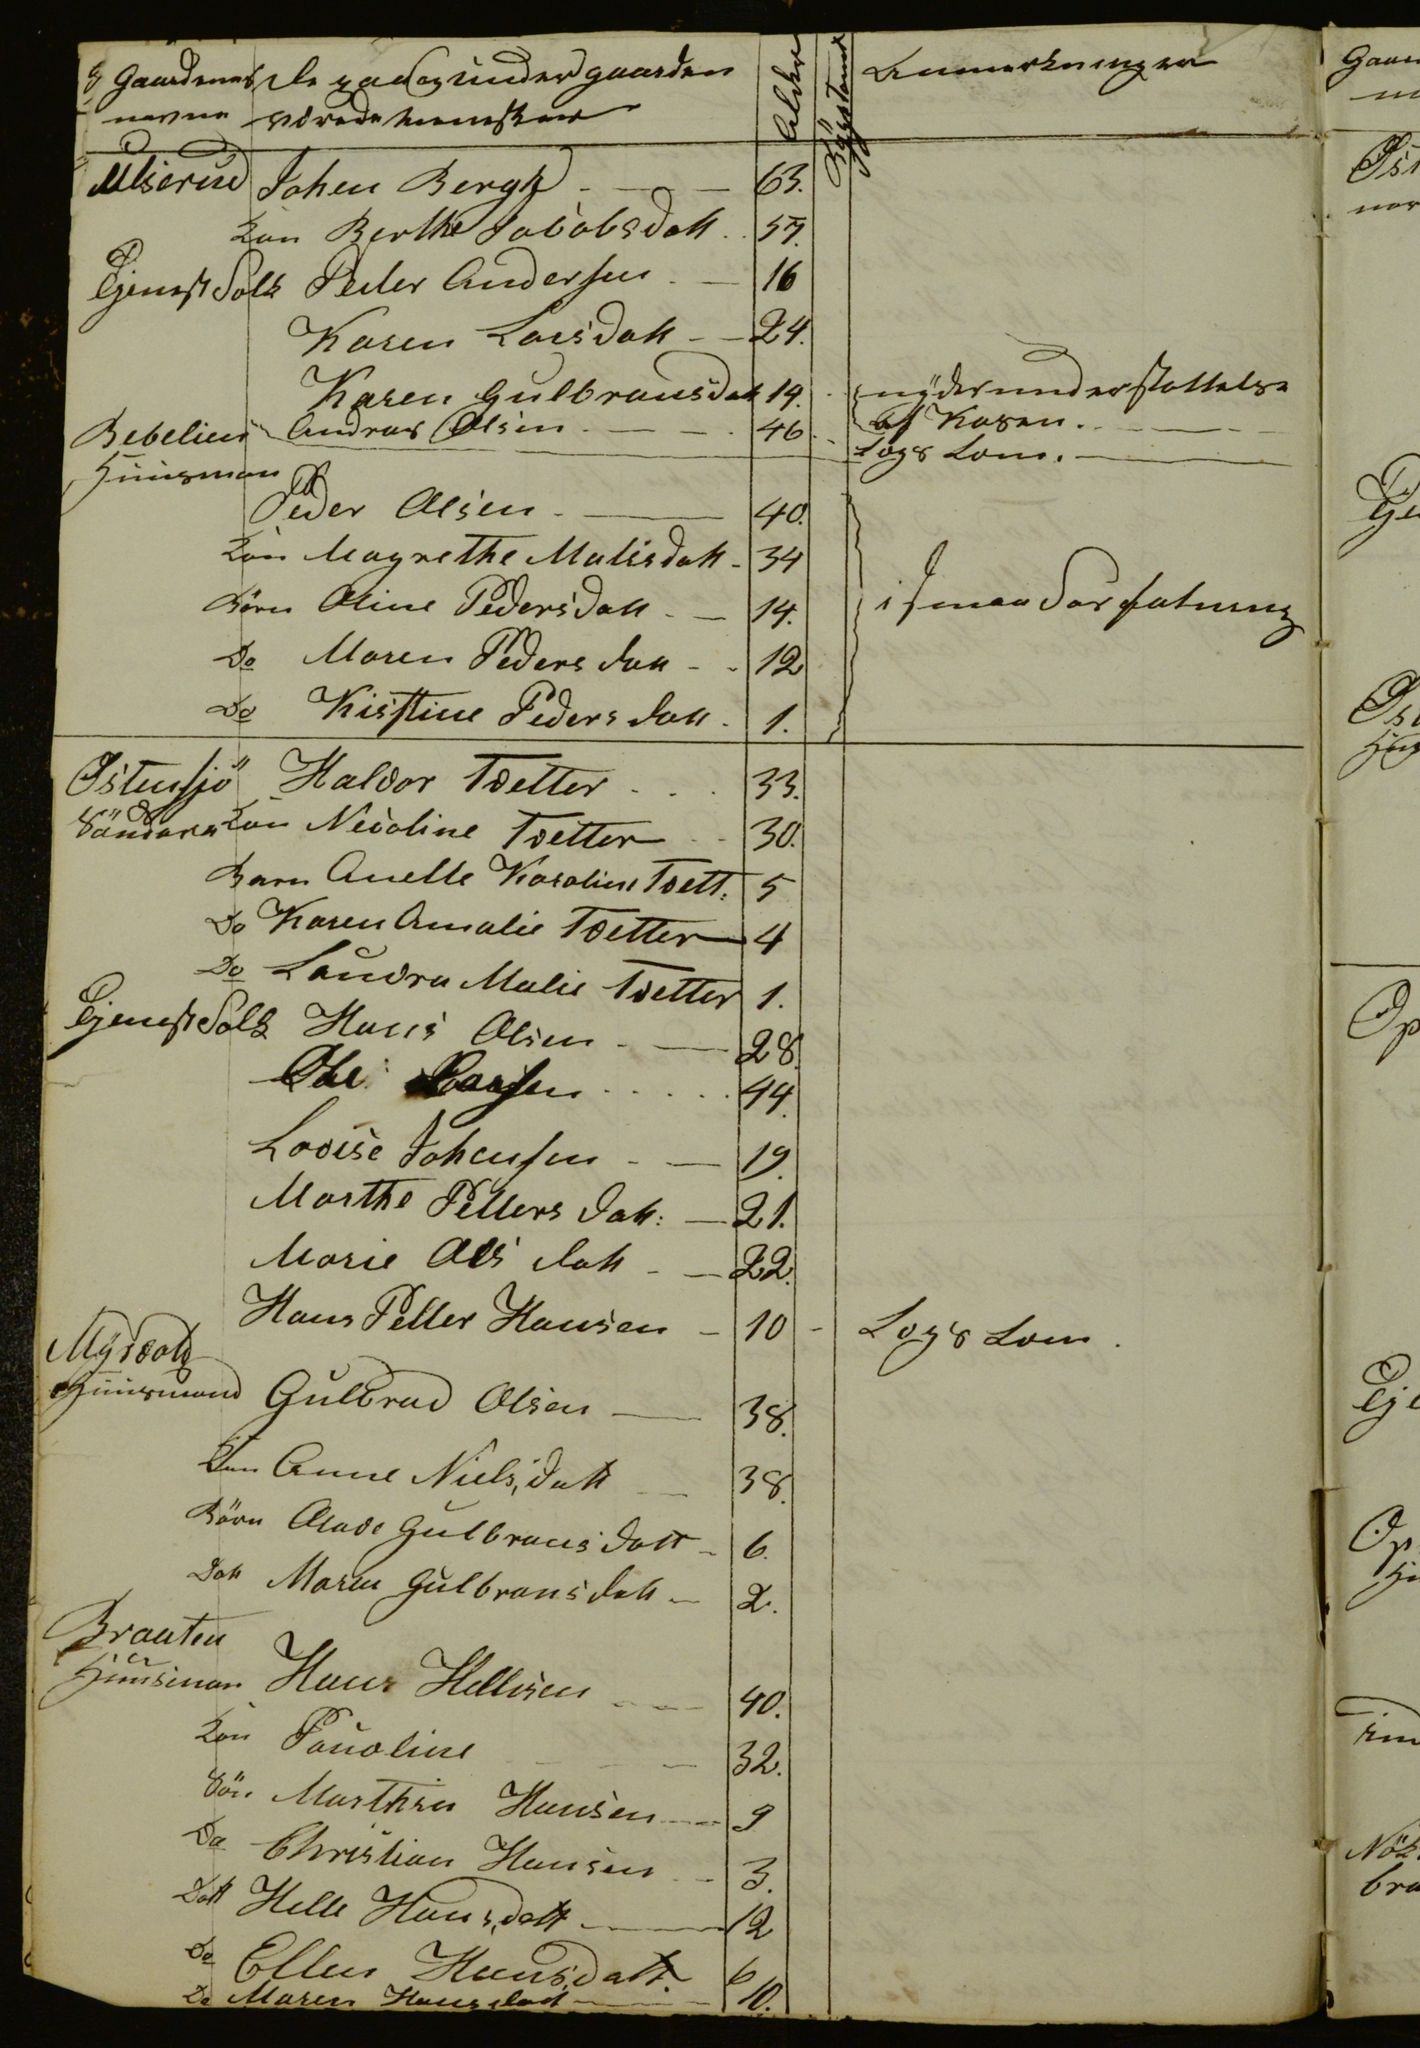 Gaardenes De paa og under gaarden Alder Bÿstand Anmerkninger
navne værende mennesker
Ulserud Johen Bergh 63.
Kon Berthe Jacobsdatt 57.
Tjenestfolk Peder Andersen 16
Karen Larsdatt 24.
Karen Gulbransdatt 14. nÿder understøttelse
Bebelien Andras Olsen 46 af Kasen.
Huusman Logs Lem.
Peder Olsen 40.
Kon Magrethe Matisdatt 34
Börn Oline Pedersdatt 14. i smaa Forfatning
Do Maren Pedersdatt 12
Do Kistine Pedersdatt 1.
Østensjö Haldor Tvetter 33.
Söndare Kon Nicoline Tvetter 30.
Barn Anette Karoline Tvett: 5
Do Karen Amalie Tvetter 4
Do Laudra Malie Tvetter 1.
Tjenestfolk Hans Olsen 28.
Ole Larsen 44.
Lovise Johensen 19.
Marthe Petters datt: 21.
Marie Ols datt 22.
Hans Petter Hansen 10 Logs Lem.
Myrvold
Huusmand Gulbrad Olsen 38.
Kon Anne Niels,datt 38.
Börn Olave Gulbransdatt 6.
Datt Maren Gulbransdatt 2.
Braaten
Huusman Hans Hellesen 40.
Kon Pauoline 32.
Sön Marthin Hansen 9
Do Christian Hansen 3.
Datt Helle Hans,datt 12
Do Ellen Hansdatt. 6
Do Maren Hansdatt 10.